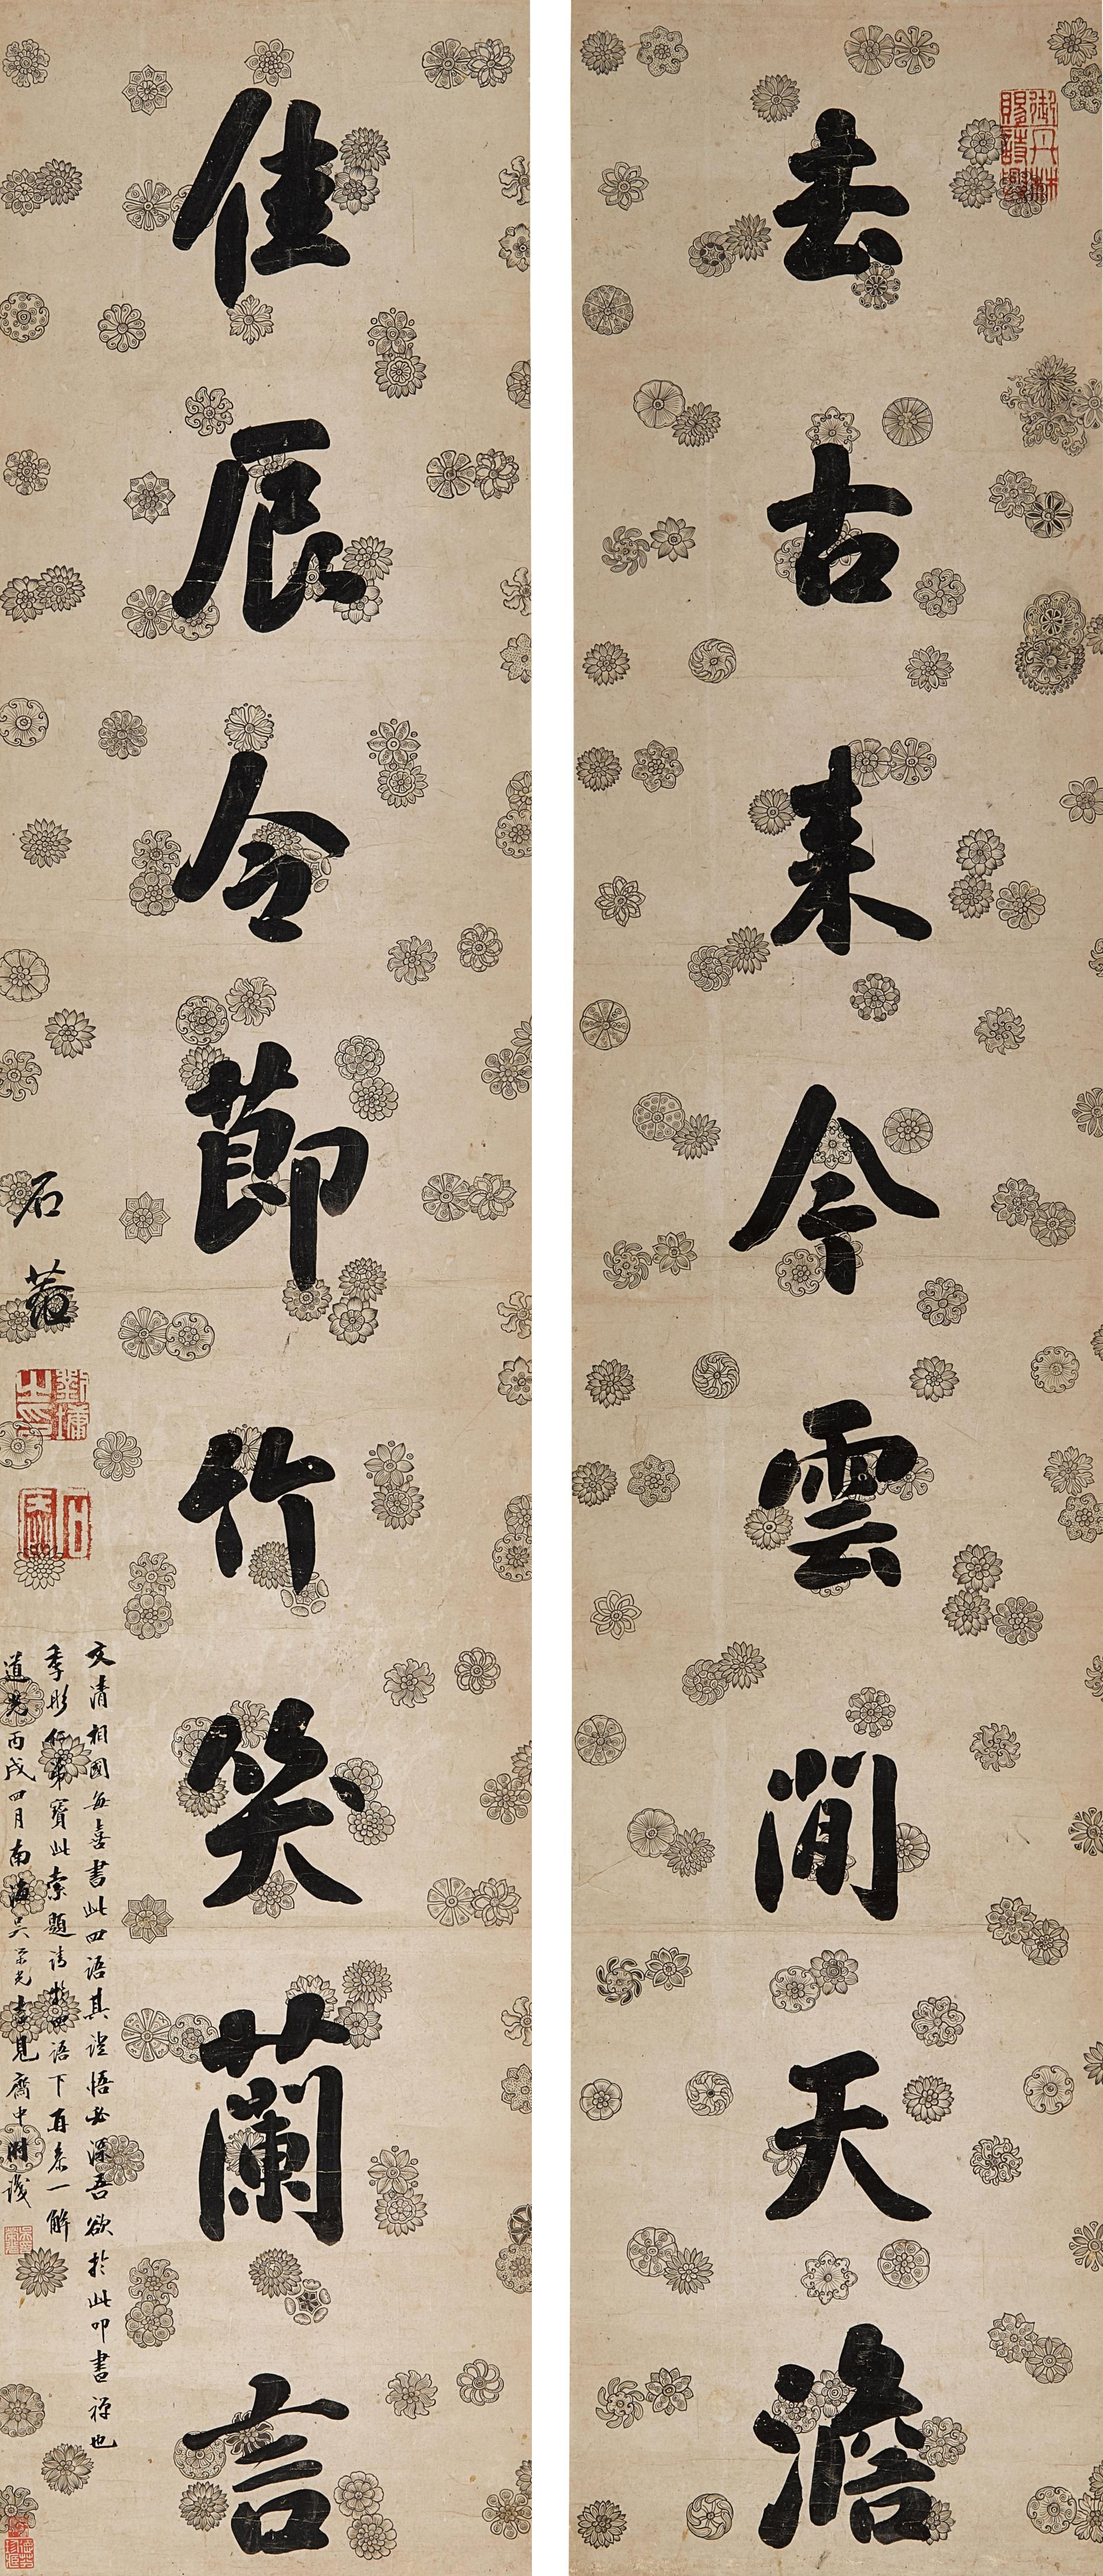 去古来今雲閒天澹
佳辰令節竹笑蘭言
石菴
劉墉之印
石菴
文清相國每喜書此四語其證悟必深吾欲於此叩書禪也
季彤仁弟寶此索題請於四語下再參一解
道光丙戌四月南海吳榮光書見齋中附識